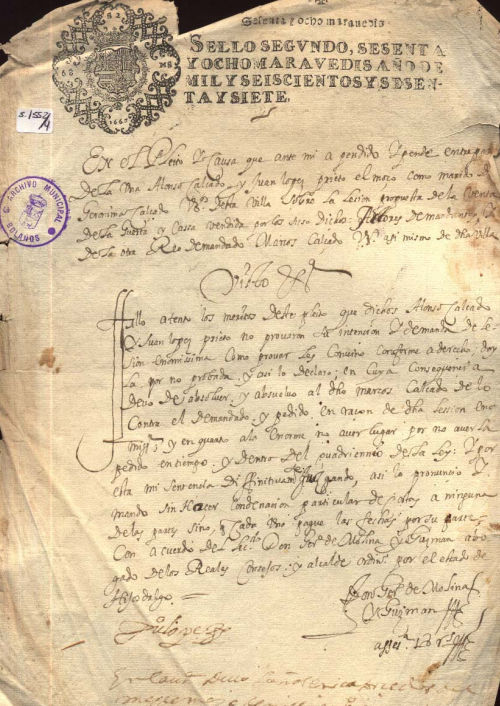 Sesenta y ocho maravedis
SELLO SEGVNDO, SESENTA
Y OCHO MARAVEDIS, AÑO DE
MIL Y SEISCIENTOS Y SESEN-
TA Y SIETE.
S. 1552/4
ARCHIVO MUNICIPAL
En el Pleito y Causa que ante mi a pendido y pende entre partes
de la una Alonso Calçado y Juan lopez prieto el moço como marido de
Geronima Calçado desta Villa sobre la lesion propuesta de la venta
de la guerta y Cassa vendida por los suso dichos Actores demandantes y
de la otra Reo demandado Marcos Calçado asi mismo de dha Villa
Visto
fallo atento los meritos deste pleito que dichos Alonso Calçado
y Juan lopez prieto no provaron su intension y demanda de le-
sion enormissima como provar les Convino Conforme a derecho, doy
la por no probada, y asi lo declaro; en Cuya Consequencia
devo de absolver, y absuelvo al dho marcos Calçado de lo
Contra el demandado, y pedido en raçon de dha lession enor
miss.ª; y en quanto a la enorme no aver lugar por no averla
pedido en tiempo, y dentro del quadriennio de la Ley: y por
esta mi sentencia difinitiva juzgando, asi lo pronuncio y
mando sin hacer Condenacion particular de Costas a ninguna
de las partes sino q Cada uno pague las fechas por su parte
Con acuerdo de Don Ger.º de Molina y Guzman abo
gado de los Reales Consejos: y alcalde ordin.º por el estado de
Hijosdalgo. =
Don Ger.º de Molina
y Guzman
Ju lopez